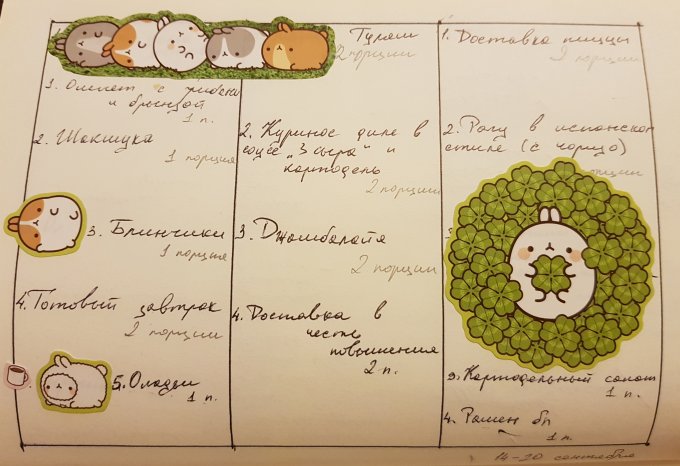 1. Омлет с грибами
и брынзой
1 п.
2. Шакшука
1 порция
3. Блинчики
1 порция
4. Готовый завтрак
2 порции
5. Оладьи
1 п.
Гуляш
2 порции
2. Куриное филе в
соусе „3 сыра" и
картофель
2 порции
3. Джамбалайя
2 порции
4. Доставка в
честь
повышения
2 п.
1. Доставка пиццы
2 порции
2. Рагу в испанском
стиле (с чоризо)
порции
3. Картофельный салат
1 п.
4. Рамен бп
1 п.
14-20 сентября